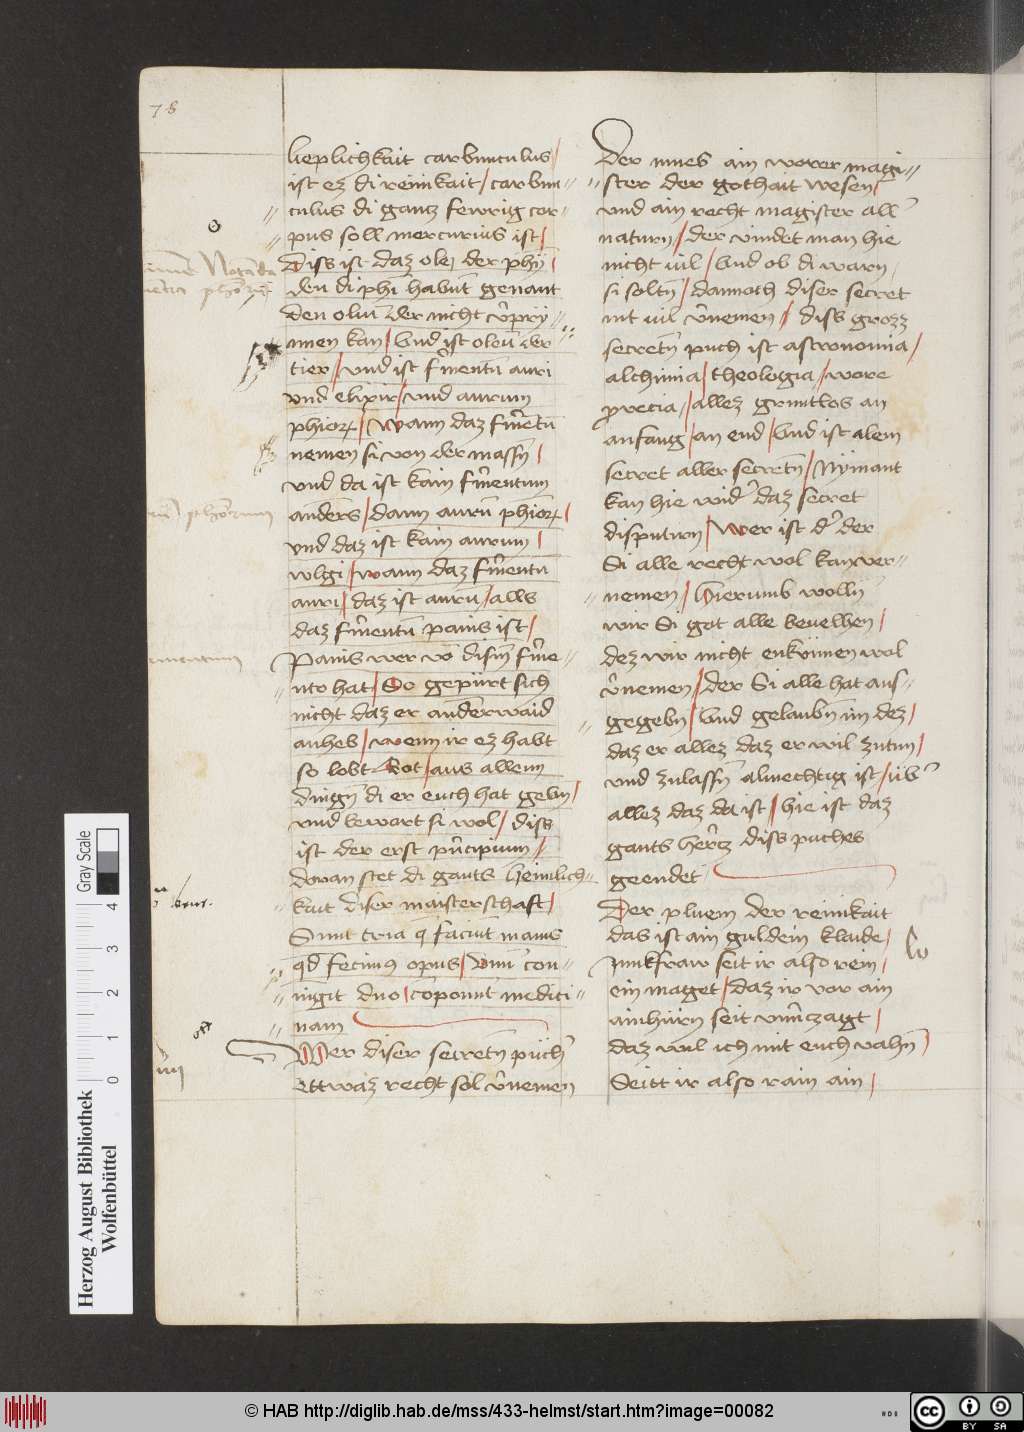 78
lieplichkait carbunculus /
ist ez di reinikait / carbun=
culus di gantz fewrig cor=
pus soll mercurius ist /
Diss ist daz olei der phÿ
den di phi habnt genant
den olui der nicht v̓prÿ=
nnen kan / Vnd ist oleū der
tier / vnd ist f̓mentū auri
vnd elixir / vnd aurum
phior / Wann daz f̓mentū
nemen si von der massn̄ /
vnd da ist kain f̓mentum
anders / dann aurū phior /
vnd daz ist kain aurum /
wlgi / wann daz f̓mentū
auri / daz ist aurū / alls
daz f̓mentū panis ist /
Panis wer vō dism̄ f̓me=
nto hat / So gepürt sich
nicht daz er anderwaid
anheb / wenn ir ez habt
so lobt Got / aus allenn
dingn̄ di er euch hat gebn̄ /
vnd bewart si wol / diss
ist der erst pn̓cipium /
Doran stet di gants heimlich=
kait diser maisterschaft /
Sunt tria q̄ faciūt manus
qd fecimus opus / Vnū con=
iugit duo / coponūt medici=
nam
Wer diser secretn̄ püch
Ettwaz recht sol v̓nemen
Der mues ain worer magi=
ster der gothait wesen /
vnd ain recht magister all̓
naturn / der vindet man hie
nicht uil / Vnd ob di warn
si soltn̄ / dannoch diser secret
nit uil v̓nemen / diss grozz
secretn̄ puch ist astronomia /
alchimia / theologia / wore
precia / allez gruntlos an
anfang / an end / Vnd ist alein
secret aller secretn̄ / Nÿmant
kan hie wid̓ daz secret
disputirn / Wer ist d̓ der
Si alle recht wol kan ver=
nemen / Hierumb wolln̄
wir Si got alle beuelhen /
dez wir nicht enkünnen wol
v̓nemen / der Si alle hat aus=
gegebn̄ / Vnd gelaubn̄ im dez /
daz er allez daz er wil zutun /
vnd zulassn̄ almechtig ist / üb̓
allez daz da ist / hie ist daz
gants hertz diss puches
geendet
Der pluem der reinikait
das ist ain guldein klaide /
Junkfraw seit ir also rein /
ein maget / daz ir vor ain
ainhürn seit vnu̓czagt /
daz wil ich mit euch vahn̄ /
Seitt ir also rain ain /
Gray Scale
0 1 2 3 4
Herzog August Bibliothek
Wolfenbüttel
© HAB http://diglib.hab.de/mss/433-helmst/start.htm?image=00082
cc BY SA